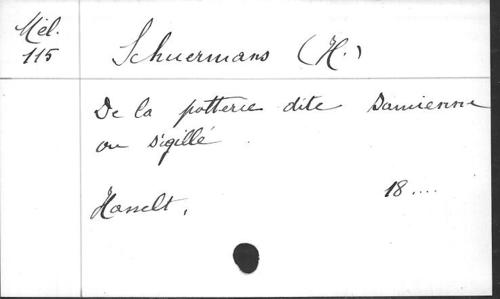 Mél.
115
Schuermans (H.)
De la potterie dite Samienne
ou sigillé
Hasselt, 18....